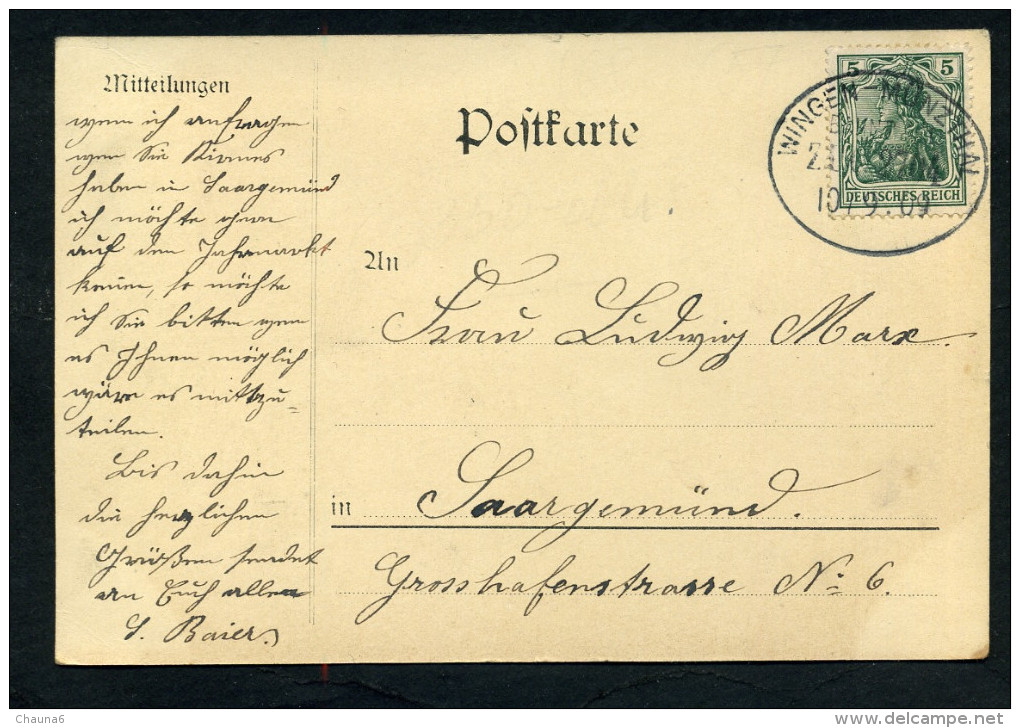 Mitteilungen
wenn ich anfragen
wen Sie Kirmes
haben in Saargemünd
ich möchte gern
auf den Jahrmarkt
komen, so möchte
ich Sie bitten wen
es Ihnen möglich
wäre es mittzu-
teilen.
Bis dahin
die herzlichen
Grüßen sendet
an Euch allen
Baier
Postkarte
5 5
DEUTSCHES REICH
WINGEN - MÜNZTHAL
10. 9. 09
An
Frau Ludwig Marx.
in Saargemünd.
Grosshafenstrasse No 6.
Chauna6
www.delcampe.net